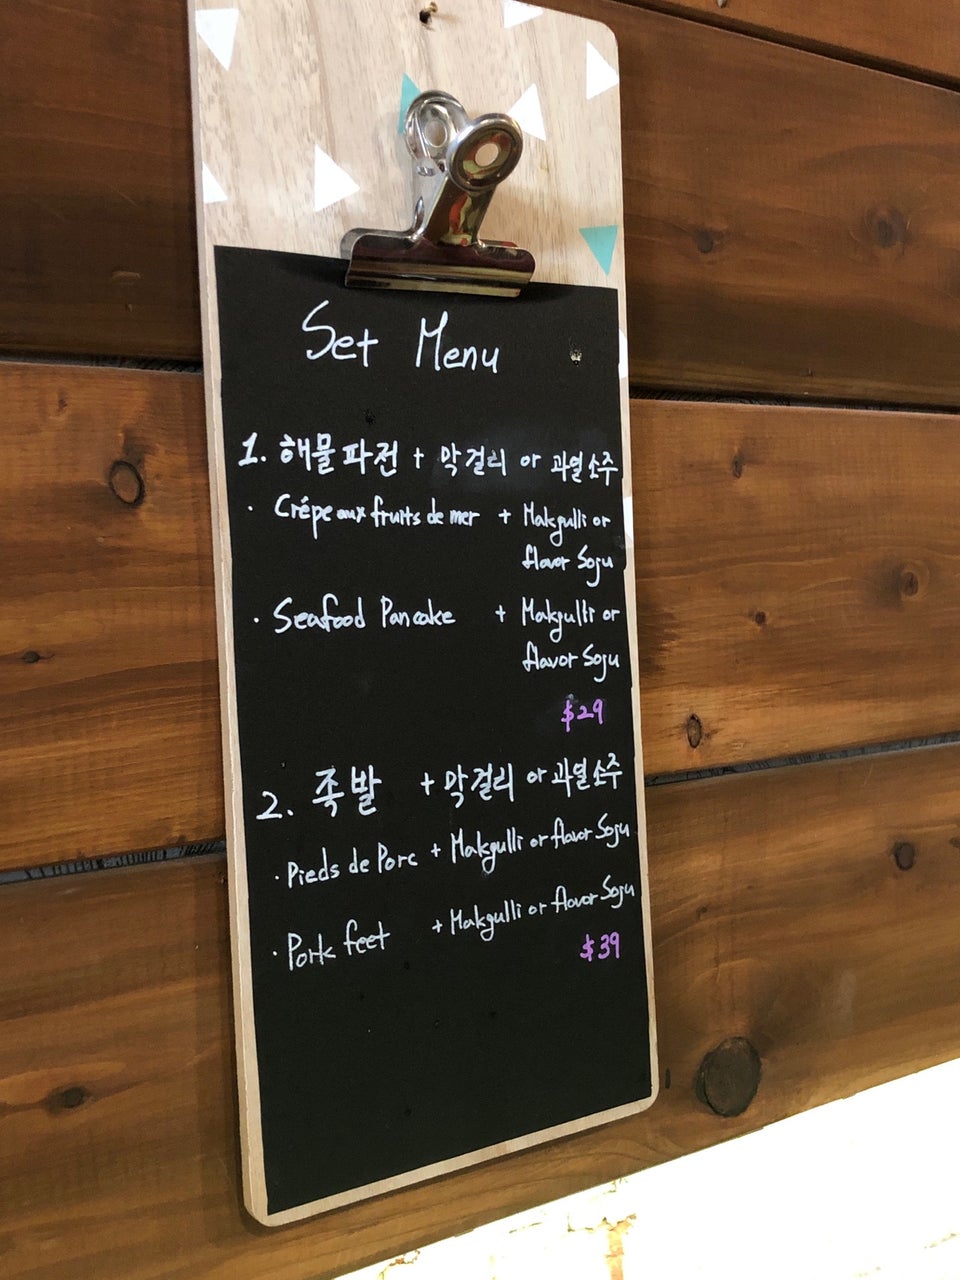 Set Menu
1. 해물파전 + 막걸리 or 과일소주
· Crêpe aux fruits de mer + Makgulli or
flavor Soju
· Seafood Pancake + Makgulli or
flavor Soju
$29
2. 족발 + 막걸리 or 과일소주
· Pieds de Porc + Makgulli or flavor Soju
· Pork feet + Makgulli or flavor Soju
$39